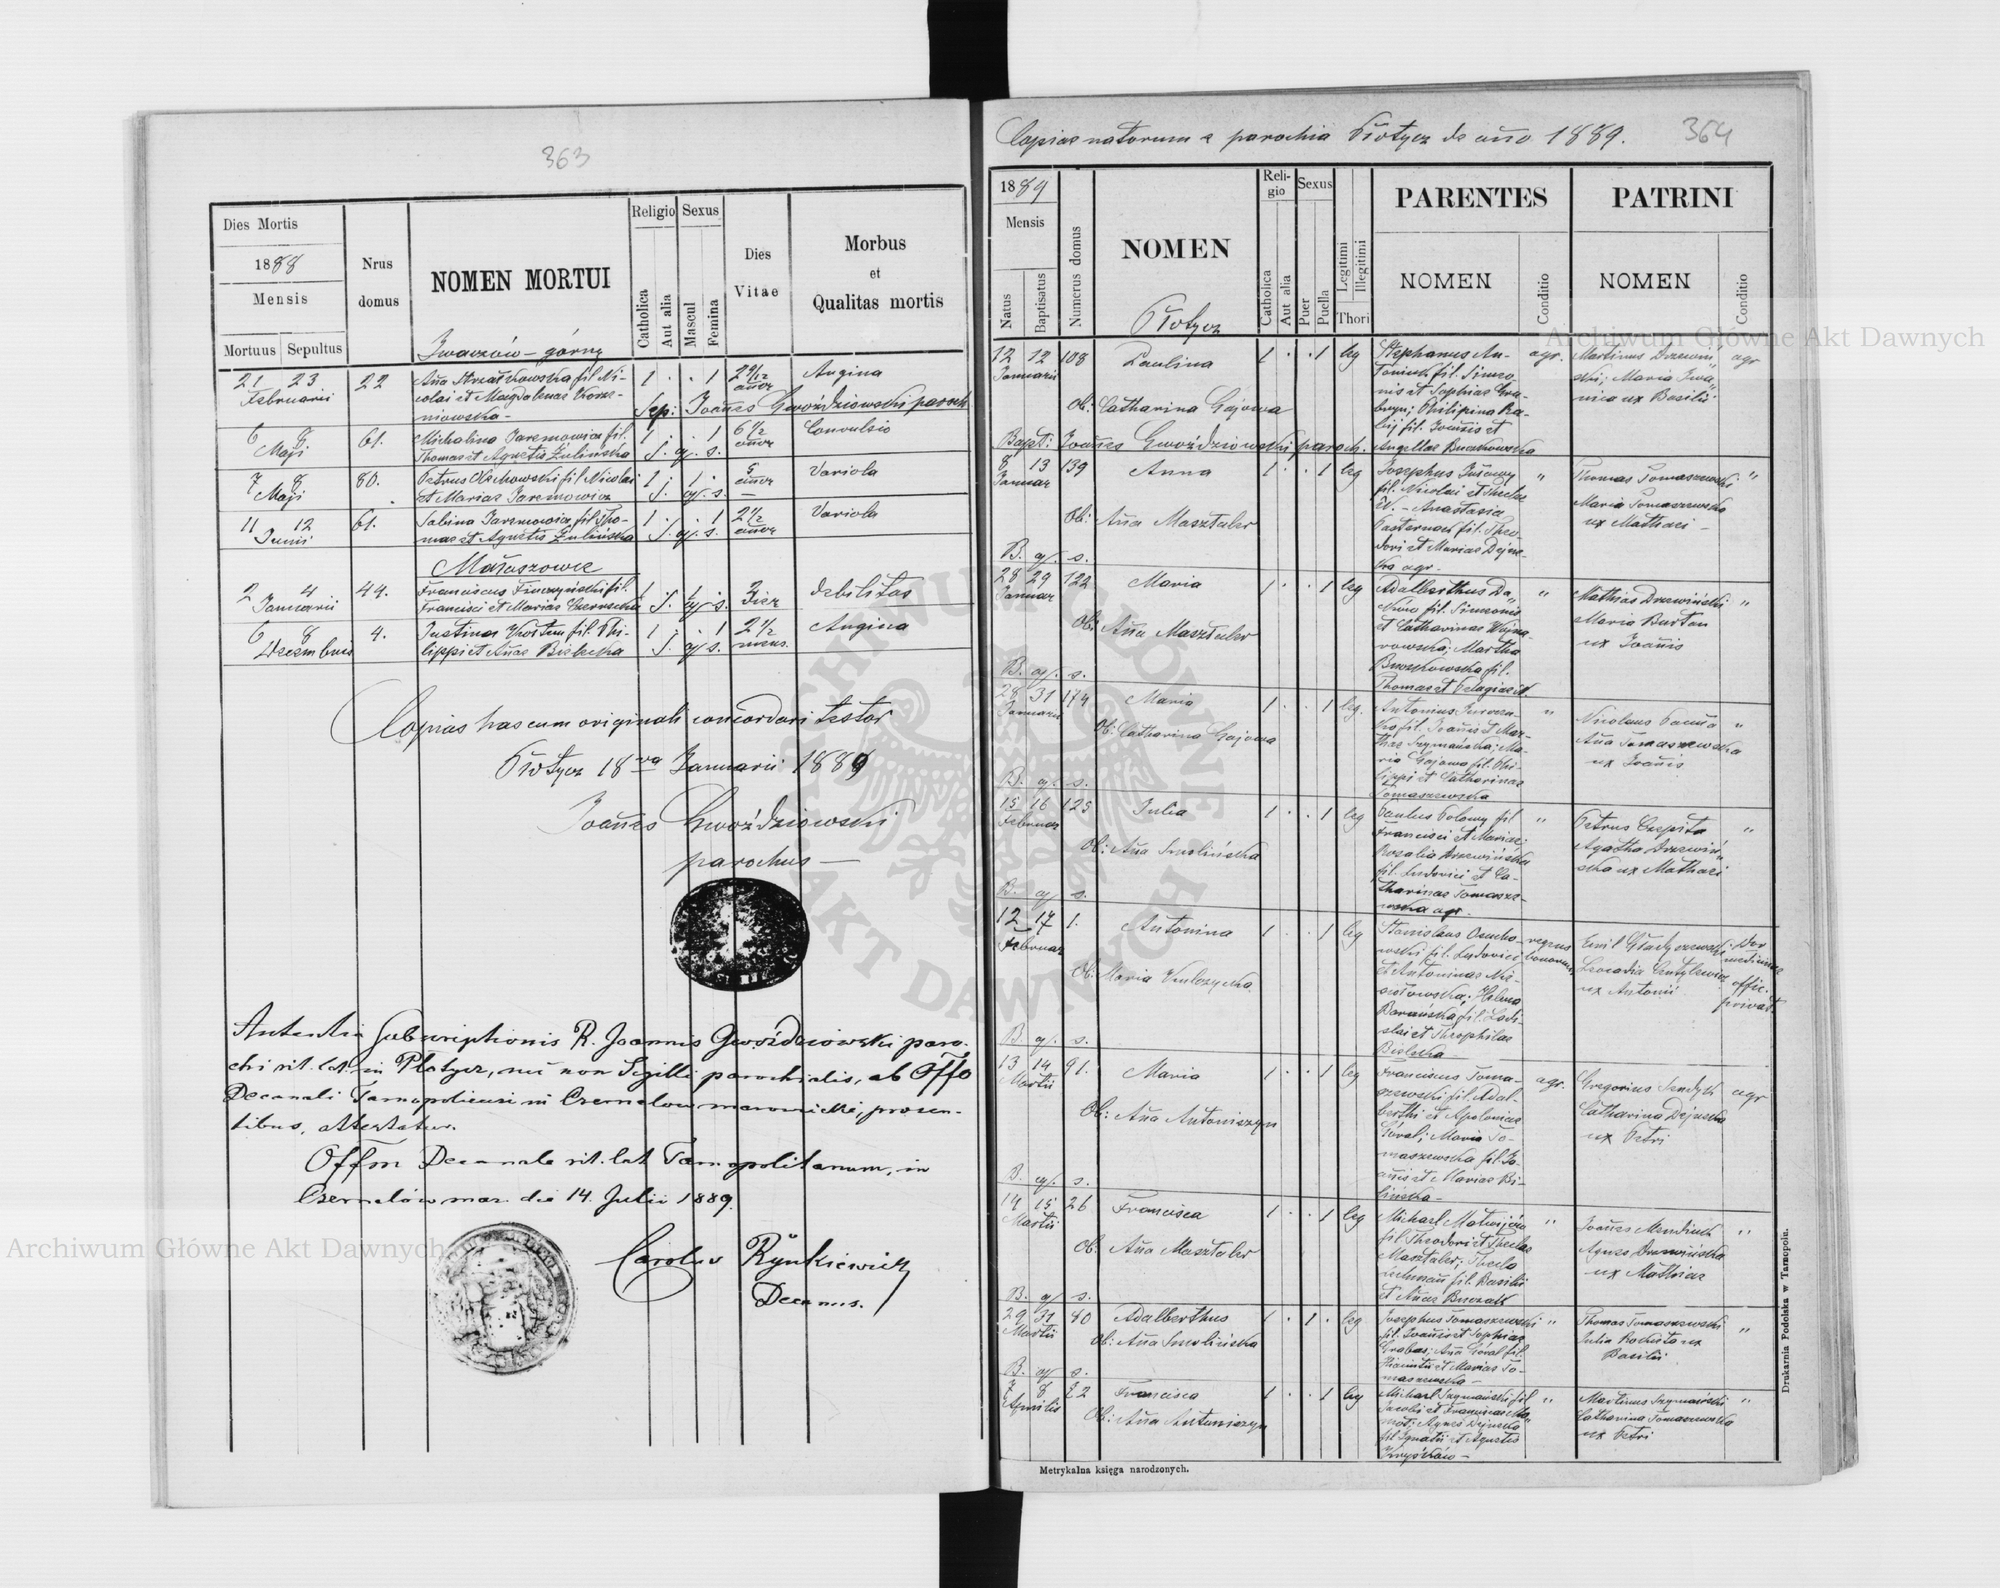 363
Dies Mortis
1888
Mensis
Mortuus Sepultus
Nrus domus
NOMEN MORTUI
Religio
Catholica
Aut alia
Sexus
Mascul
Femina
Dies Vitae
Morbus
et
Qualitas mortis
Iwaczów – górny
21 23 22 Aña fil. Ni- 1 . . 1 Angina
Februarii colai et Magdalenae
Sep: Joañes Gwoździowski paroch
6 8 61. Michalina Jaremowicz fil. 1 . . 1 6 1/2 Convulsio
Maji Thomae et Agnetis Żulińska S. qf. s. añor
7 8 80. Petrus Olchowski fil. Nicolai 1 . 1 . 5 Variola
Maji et Mariae Jaremowicz S. qf. s. añor
11 12 61. Sabina Jaremowicz fil. Tho- 1 . . 1 2 1/2 Variola
Junii mae et Agnetis Żulińska S. qf. s. añor
Małaszowce
2 4 44. Franciscus fil. 1 . 1 . debilitas
Januarii Francisci et Mariae S. qf. s.
6 8 4. Justina fil. Phi- 1 . . 1 2 1/2 Angina
Decembris lippi et Añae Bielecka S. qf. s. mens.
Copias has cum originali concordari testor
Płotycz 18va Januarii 1889
Joañes Gwoździowski
parochus –
Autentia subscriptionis R. Joannis Gwoździowski paro-
chi rit. lat. in Płotycz, nec non Sigilli parochialis, ab Offo
Decanali Tarnopoliensi in Czernelow mazowiecki, prosen-
tibus, attestatur.
Offm Decanale rit. lat. Tarnopolitanum, in
Czernelów maz. die 14. Julii 1889.
Carolus Rynkiewicz
Decanus.
Copiae natorum e parochia Płotycz de año 1889. 364
1889
Mensis
Natus
Baptisatus
Numerus domus
NOMEN
Płotycz
Religio
Catholica
Aut alia
Sexus
Puer
Puella
Legitimi
Illegitimi
Thori
PARENTES
NOMEN
Conditio
PATRINI
NOMEN
Conditio
12 12 108 Paulina 1 . . 1 leg Stephanus An- agr. Martinus Drzewiń- agr
Januarii toniuk fil. Simeo- ski; Maria Iwa-
nis et Sophiae nica ux Basilii
Ob: Catharina Gajowa Philipina
fil. Joañis et
Bapt: Joañes Gwoździowski paroch. Angellae Buczkowska
8 13 139 Anna 1 . . 1 leg Josephus " Thomas Tomaszewski "
Januar fil. Nicolai et Theclae Maria Tomaszewska
Ob: Aña Masztaler Anastasia ux Mathaei –
Pasternak fil. Theo-
B. qf. s. dori et Mariae Dejne-
ka agr.
28 29 122 Maria 1 . . 1 leg Adalberthus " Mathias Drzewiński "
Januar fil. Simeonis Maria Burtan
Ob: Aña Masztaler et Catharinae Wojna- ux Joañis
rowska; Martha
B. qf. s. Buczkowska fil.
Thomae et Pelagiae
28 31 174 Maria 1 . . 1 leg. Antonius " Nicolaus "
Januarii fil. Joañis et Mar- Aña Tomaszewska
Ob: Catharina Gajowa thae Szymańska; Ma- ux Joañis
ria Gajowa fil. Phi-
B. qf. s. lippi et Catharinae
Tomaszewska
15 16 125 Julia 1 . . 1 leg Paulus fil " Petrus "
Februar Francisci et Mariae; Agatha Drzewiń-
Ob: Aña Smolińska Rosalia Drzewińska ska ux Mathaei
fil. Ludovici et Ca-
B. qf. s. tharinae Tomasze-
wska agr.
12 17 1. Antonina 1 . . 1 leg Stanislaus Osucho- regens Emil Dor
Februar wski fil. Ludovici bonorum Leocadia medicinae
Ob: Maria et Antoninae ux Antonii offic.
Helena privat.
Borańska fil. Ladi-
B. qf. s. slai et Theophilae
Bielecka –
13 14 91. Maria 1 . . 1 leg Franciscus Toma- agr. Gregorius agr
Martii szewski fil. Adal- Catharina Dejneka
Ob: Aña Antoniszyn berthi et Apoloniae ux Petri
Góral; Maria To-
maszewska fil. Jo-
B. qf. s. añis et Mariae Bi-
lińska –
14 15 26 Francisca 1 . . 1 leg Michael " Joañes "
Martii fil Theodori et Theclae Agnes Drzewińska
Ob: Aña Masztaler Masztaler; Thecla ux Mathiae
fil. Basilii
B. qf. s. et Añae
29 31 80 Adalberthus 1 . 1 . leg Josephus Tomaszewski " Thomas Tomaszewski "
Martii fil. Joañis et Sophiae Julia ux
Ob: Aña Smolińska Grabas; Aña Góral fil. Basilii
B. qf. s. Hiacinthi et Mariae To-
maszewska –
7 8 82 Francisca 1 . . 1 leg Michael Szymański fil " Martinus Szymański "
Aprilis Jacobi et Franciscae Catharina Tomaszewska
Ob: Aña Antoniszyn Agnes Dejneka ux Petri
fil Ignatii et Agnetis
Metrykalna księga narodzonych.
Drukarnia Podolska w Tarnopolu.
Archiwum Główne Akt Dawnych
Archiwum Główne Akt Dawnych
ARCHIWUM GŁÓWNE AKT DAWNYCH